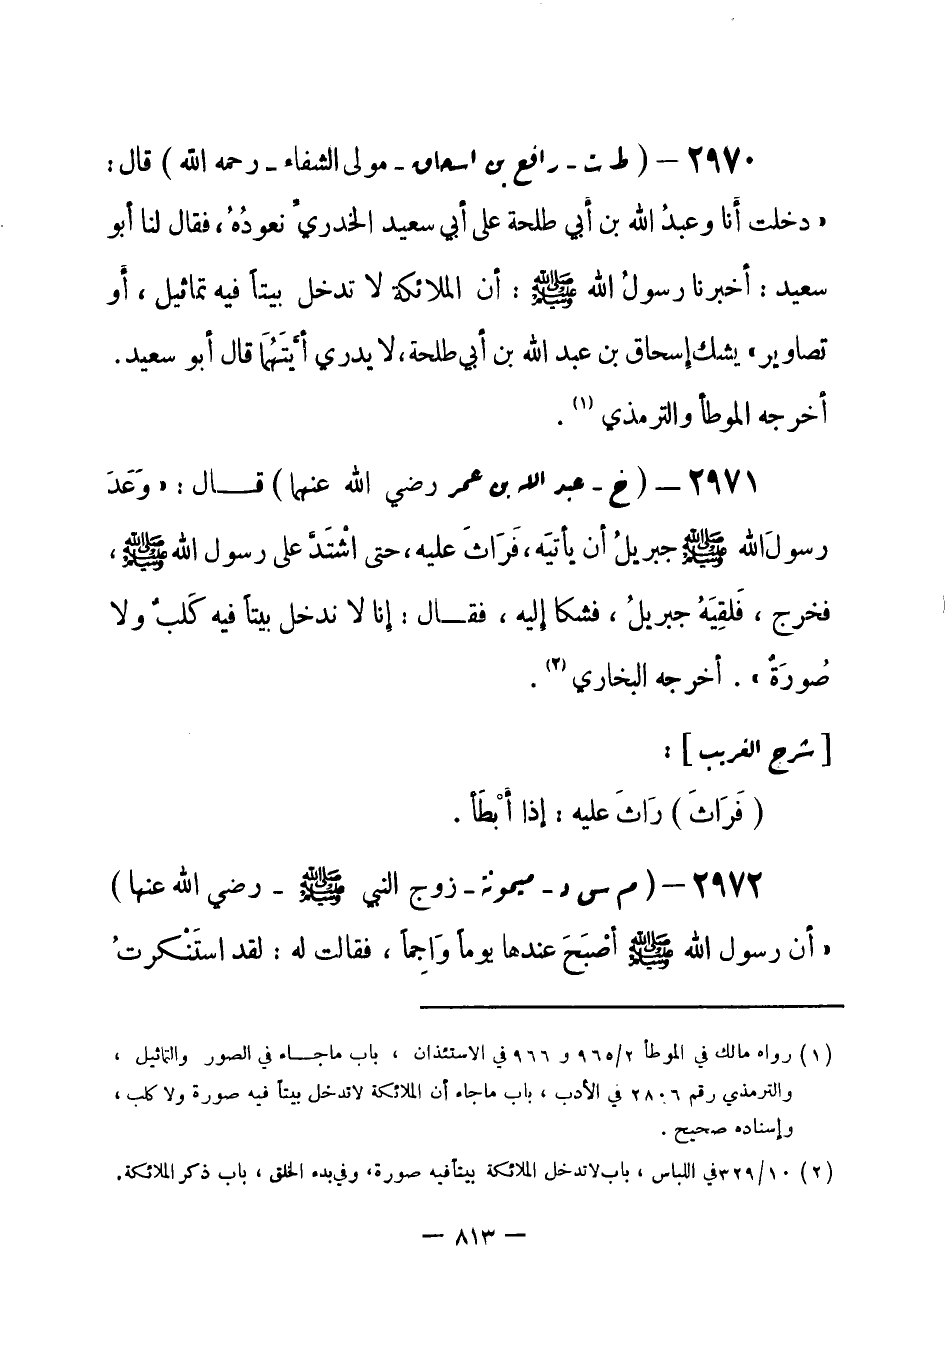 ٢٩٧٠ – ( ط ت ـ رافع بن اسحاق ـ مولى الشفاء ـ رحمه الله ) قال :
« دخلت أنا وعبدُ الله بن أبي طلحة على أبي سعيد الخدريِّ نعودُهُ ، فقال لنا أبو
سعيد : أخبرنا رسولُ الله ﷺ : أن الملائكة لا تدخل بيتاً فيه تماثيل ، أو
تصاوير » يشك إسحاق بن عبد الله بن أبي طلحة ، لا يدري أيَّتَهُما قال أبو سعيد .
أخرجه الموطأ والترمذي (١) .
٢٩٧١ – ( خ ـ عبد الله بن عمر رضي الله عنهما ) قــال : « وَعَدَ
رسولَ الله ﷺ جبريلُ أن يأتيَه ، فَرَاثَ عليه ، حتى اشْتَدَّ على رسول الله ﷺ ،
فخرج ، فَلقِيَهُ جبريلُ ، فشكا إليه ، فقــال : إنا لا ندخل بيتاً فيه كَلبٌ ولا
صُورَةٌ » . أخرجه البخاري (٢) .
[ شرح الغريب ] :
( فَرَاثَ ) رَاثَ عليه : إذا أبْطَأ .
٢٩٧٢ – ( م س د ـ ميمونة ـ زوج النبي ﷺ ـ رضي الله عنها )
« أن رسول الله ﷺ أصْبَحَ عندها يوماً وَاجِماً ، فقالت له : لقد استَنْكرتُ
(١) رواه مالك في الموطأ ٩٦٥/٢ و ٩٦٦ في الاستئذان ، باب ماجــاء في الصور والتماثيل ،
والترمذي رقم ٢٨٠٦ في الأدب ، باب ماجاء أن الملائكة لاتدخل بيتاً فيه صورة ولا كلب ،
وإسناده صحيح .
(٢) ٣٢٩/١٠ في اللباس ، باب لاتدخل الملائكة بيتاً فيه صورة ، وفي بدء الخلق ، باب ذكر الملائكة .
– ٨١٣ –